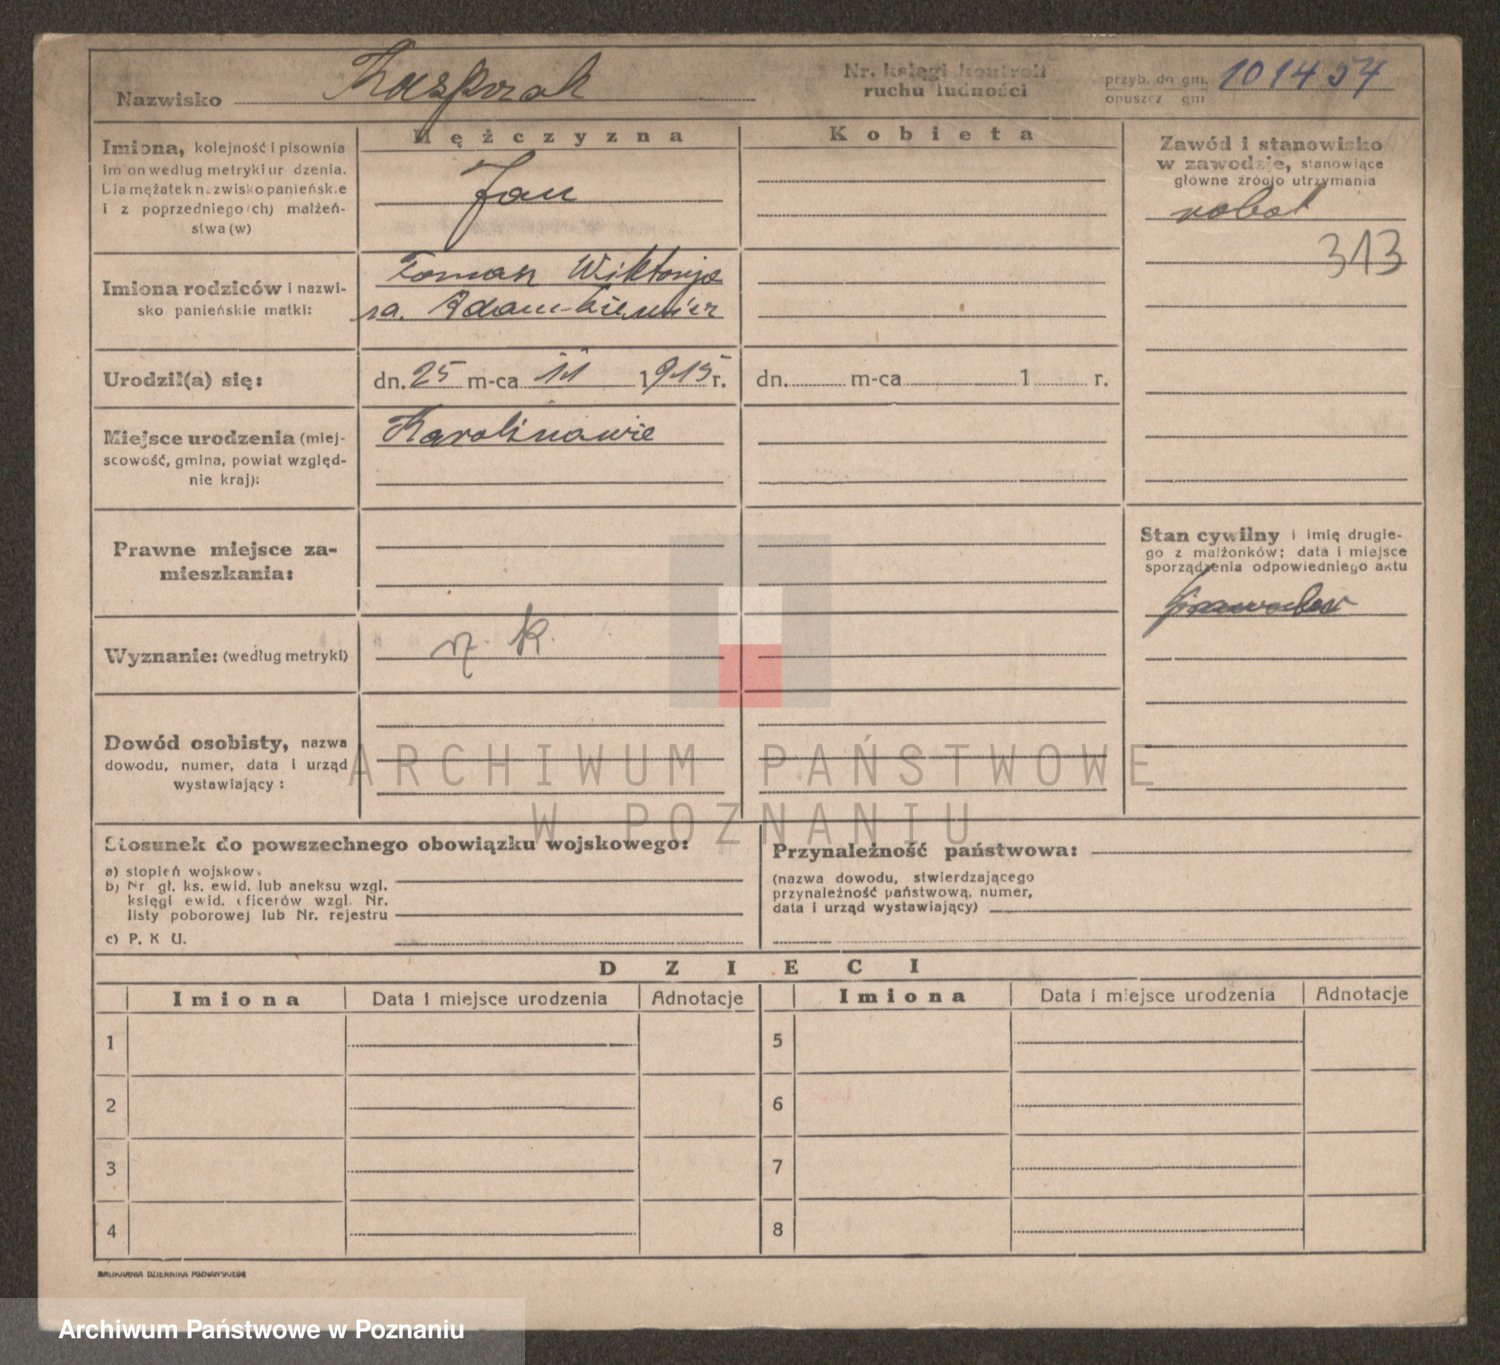 Nazwisko Kasprzak
Nr. księgi kontroli
ruchu ludności
przyb. do gm. 101454
opuszcz gm
Imiona, kolejność i pisownia
imion według metryki urodzenia.
Dla mężatek nazwisko panieńskie
i z poprzedniego(ch) małżeń-
stwa (w)
Mężczyzna
Jan
Kobieta
Zawód i stanowisko
w zawodzie, stanowiące
główne źródło utrzymania
robot
313
Imiona rodziców i nazwi-
sko panieńskie matki:
Tomasz Wiktorja
Urodził(a) się:
dn. 25 m-ca 11 1915 r.
dn. m-ca 1 r.
Miejsce urodzenia (miej-
scowość, gmina, powiat względ-
nie kraj):
Karolinowie
Prawne miejsce za-
mieszkania:
Stan cywilny i imię drugie-
go z małżonków; data i miejsce
sporządzenia odpowiedniego aktu
Wyznanie: (według metryki)
r. k.
Dowód osobisty, nazwa
dowodu, numer, data i urząd
wystawiający :
ARCHIWUM PAŃSTWOWE
W POZNANIU
Stosunek do powszechnego obowiązku wojskowego:
a) stopień wojskowy
b) Nr gł. ks. ewid. lub aneksu wzgl.
księgi ewid. oficerów wzgl. Nr.
listy poborowej lub Nr. rejestru
c) P. K U.
Przynależność państwowa:
(nazwa dowodu, stwierdzającego
przynależność państwową, numer,
data i urząd wystawiający)
DZIECI
Imiona Data i miejsce urodzenia Adnotacje Imiona Data i miejsce urodzenia Adnotacje
1 5
2 6
3 7
4 8
DRUKARNIA DZIENNIKA POZNAŃSKIEGO
Archiwum Państwowe w Poznaniu